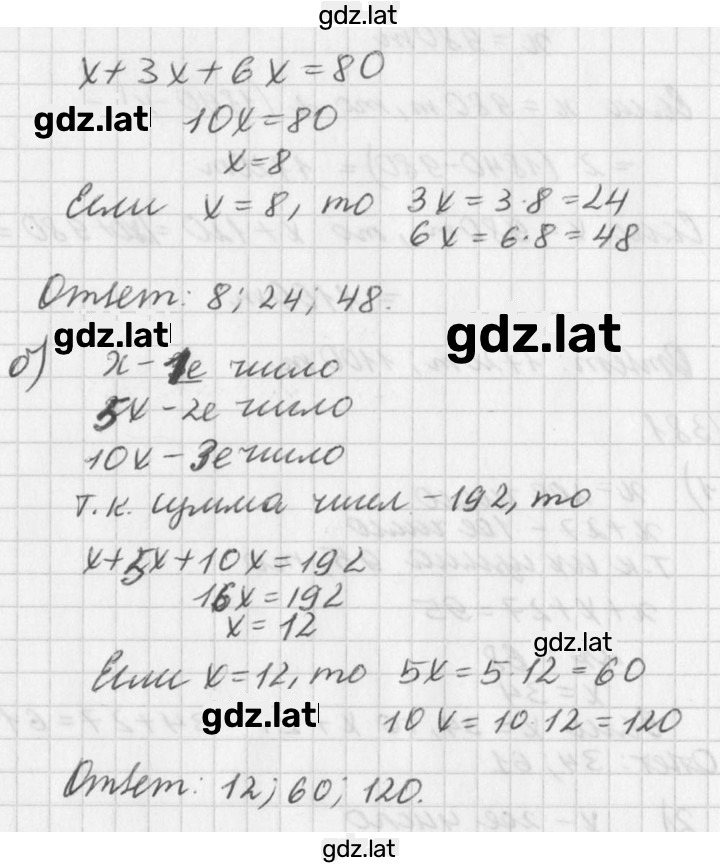 gdz.lat
x+3x+6x=80
gdz.lat 10x=80
x=8
Если x=8, то 3x=3·8=24
6x=6·8=48
Ответ: 8; 24; 48.
gdz.lat gdz.lat
б) x-1е число
5x-2е число
10x-3е число
т.к. сумма чисел -192, то
x+5x+10x=192
16x=192
x=12
gdz.lat
Если x=12, то 5x=5·12=60
gdz.lat 10x=10·12=120
Ответ: 12; 60; 120.
gdz.lat